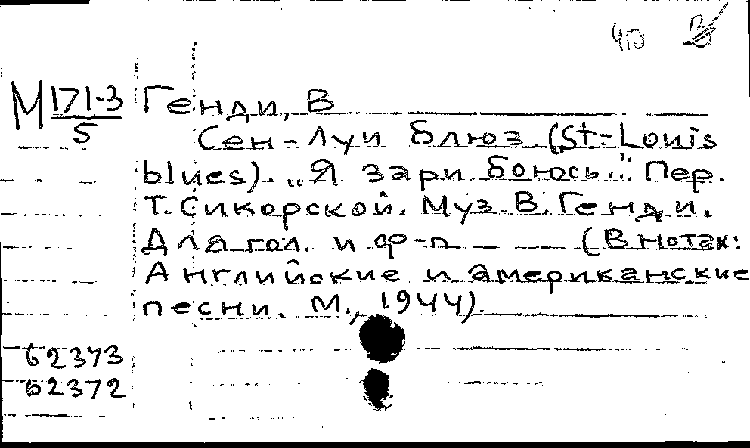 М 171-3
5
Генди, В
Сен-Луи блюз (St-Louis
blues). „Я зари боюсь..." Пер.
Т. Сикорской. Муз. В. Генди.
Для гол. и ф-п — — (В нотах:
Английские и американские
песни. М., 1944).
62373
62372